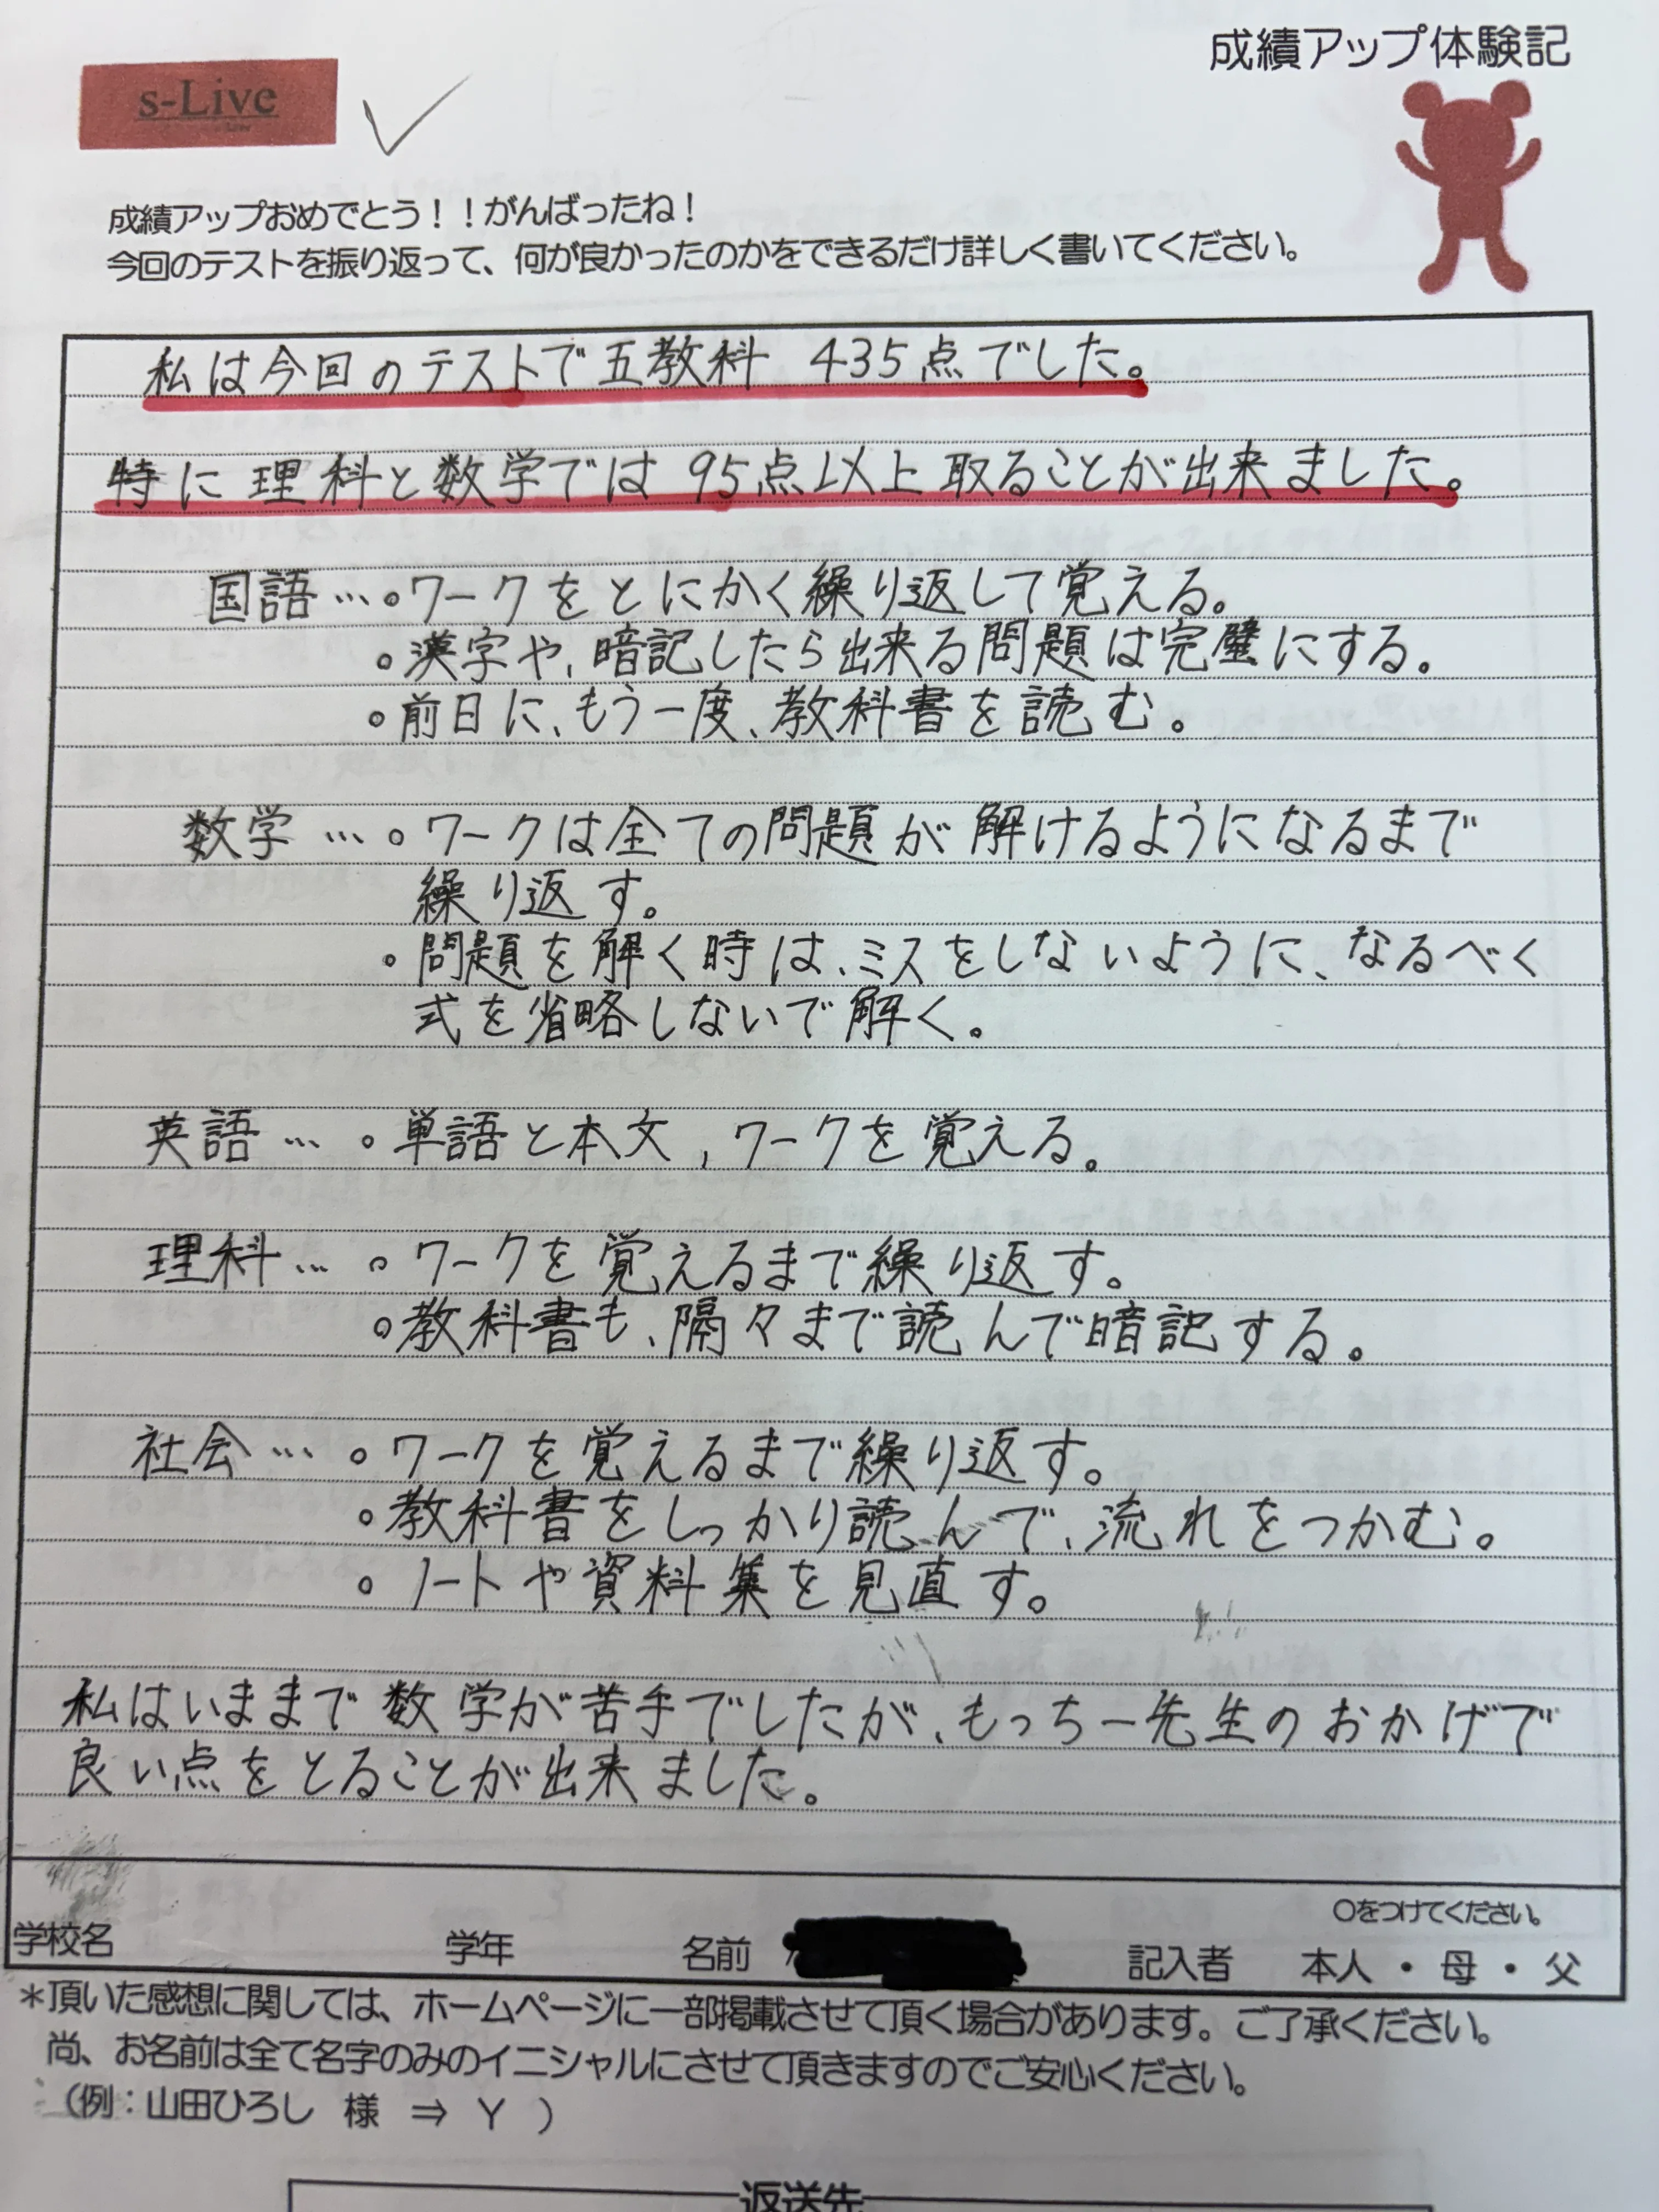 成績アップ体験記
s-Live
成績アップおめでとう！！がんばったね！
今回のテストを振り返って、何が良かったのかをできるだけ詳しく書いてください。
私は今回のテストで五教科 435点でした。
特に理科と数学では95点以上取ることが出来ました。
国語…。ワークをとにかく繰り返して覚える。
。漢字や、暗記したら出来る問題は完璧にする。
。前日に、もう一度、教科書を読む。
数学…。ワークは全ての問題が解けるようになるまで
繰り返す。
。問題を解く時は、ミスをしないように、なるべく
式を省略しないで解く。
英語…。単語と本文，ワークを覚える。
理科…。ワークを覚えるまで繰り返す。
。教科書も、隅々まで読んで暗記する。
社会…。ワークを覚えるまで繰り返す。
。教科書をしっかり読んで、流れをつかむ。
。ノートや資料集を見直す。
私はいままで数学が苦手でしたが、もっちー先生のおかげで
良い点をとることが出来ました。
〇をつけてください。
学校名 学年 名前 記入者 本人・母・父
＊頂いた感想に関しては、ホームページに一部掲載させて頂く場合があります。ご了承ください。
尚、お名前は全て名字のみのイニシャルにさせて頂きますのでご安心ください。
（例：山田ひろし 様 ⇒ Y ）
返送先